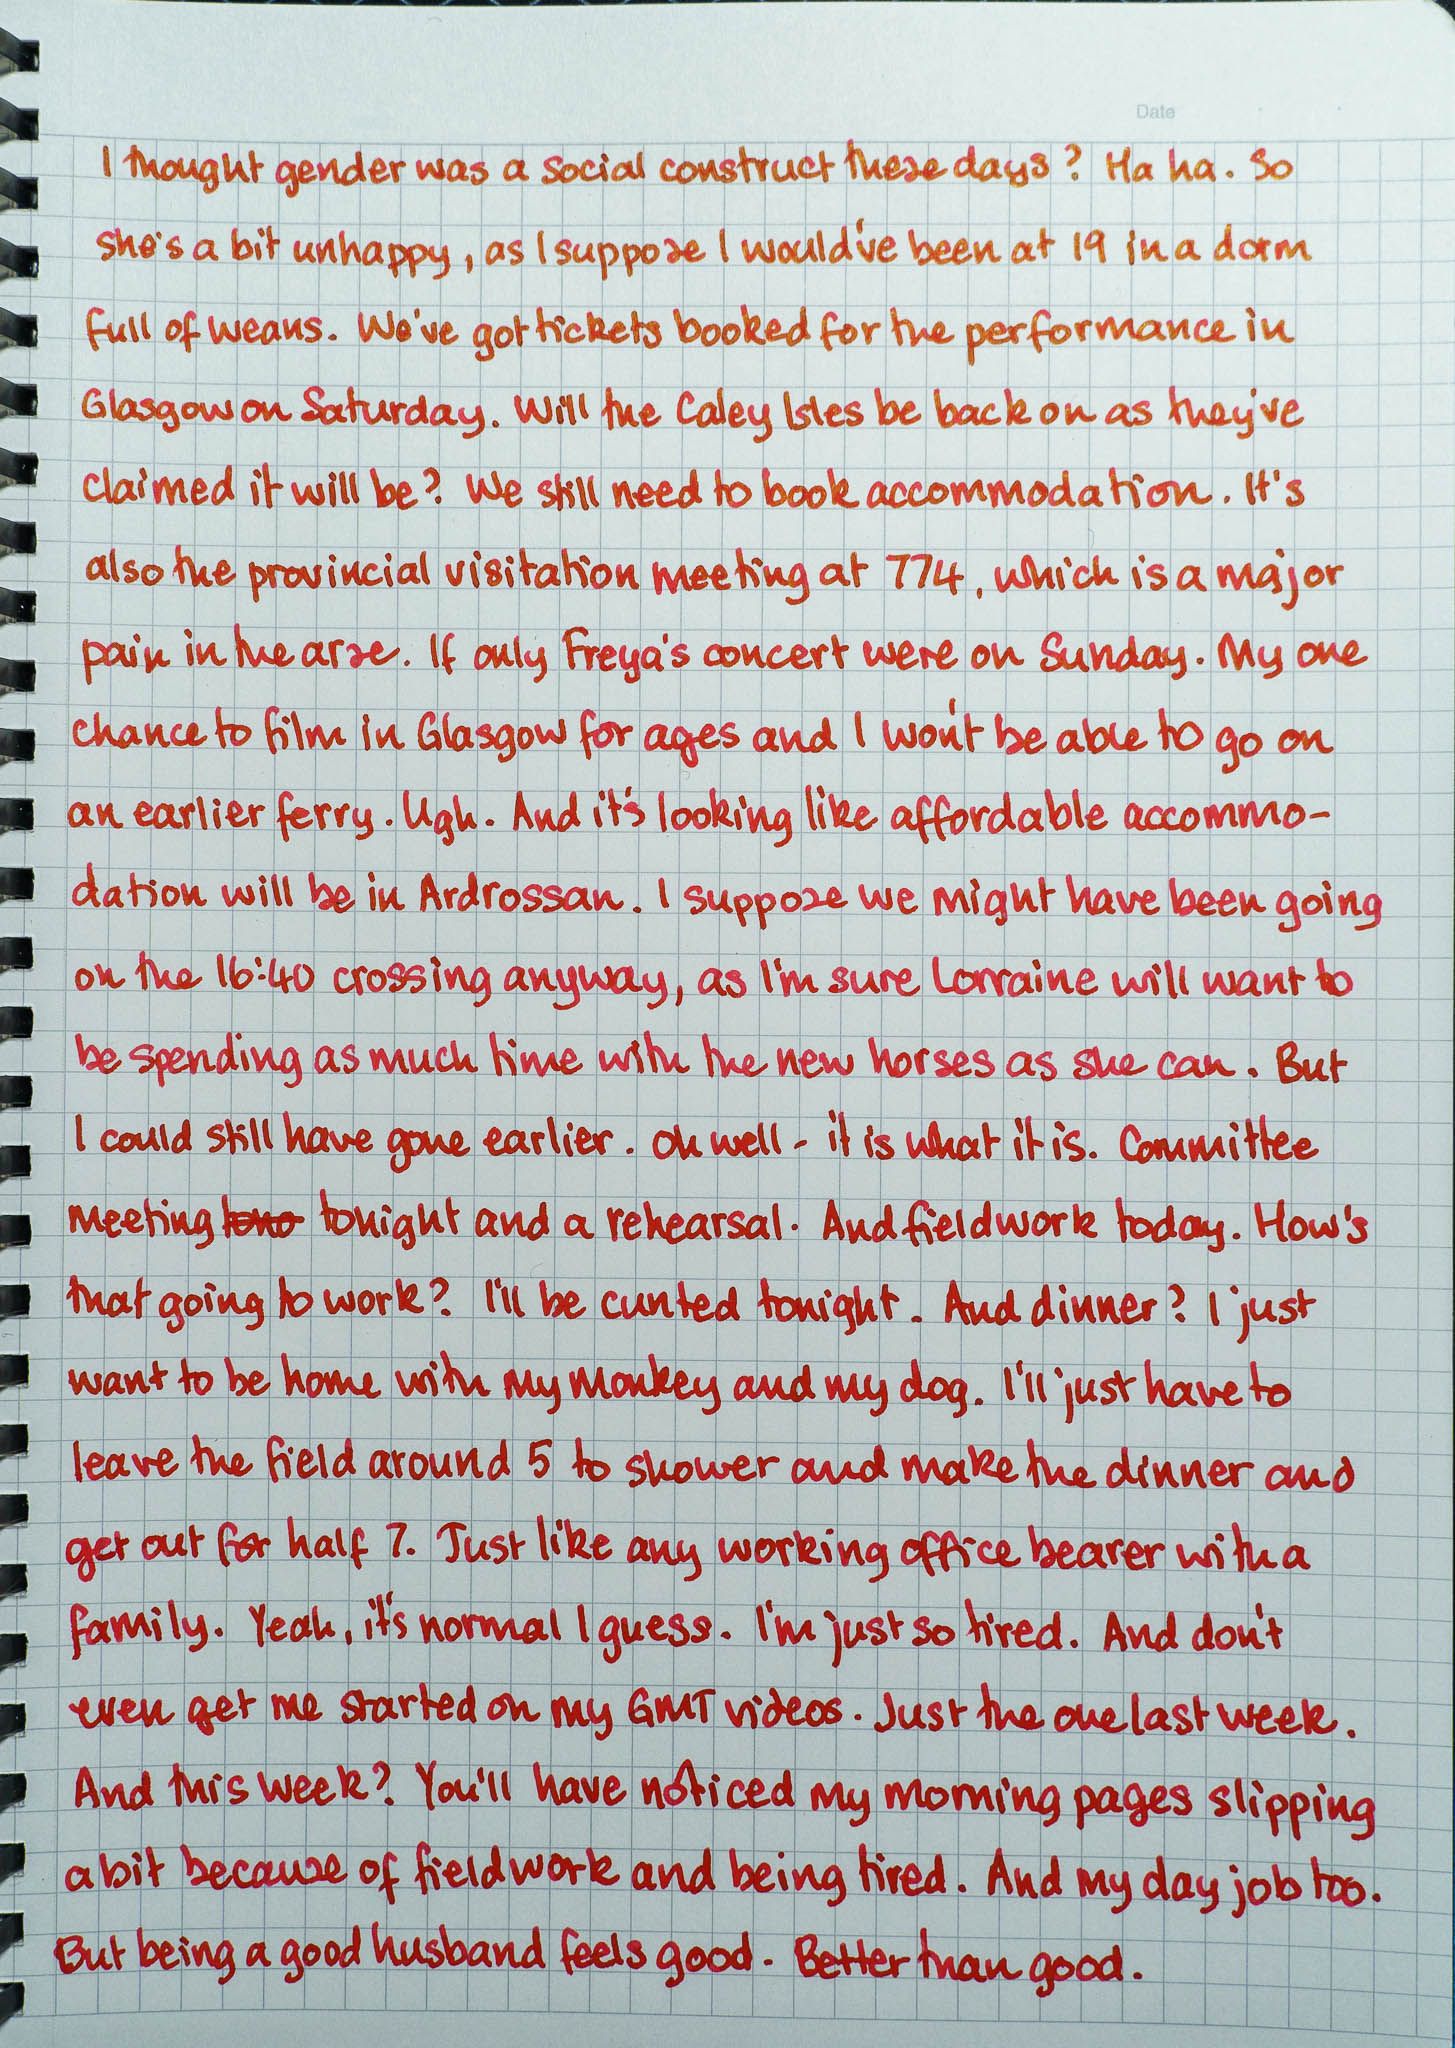 Date
I thought gender was a social construct these days? Ha ha. So
she's a bit unhappy, as I suppose I would've been at 19 in a dorm
full of weans. We've got tickets booked for the performance in
Glasgow on Saturday. Will the Caley Isles be back on as they've
claimed it will be? We still need to book accommodation. It's
also the provincial visitation meeting at 774, which is a major
pain in the arse. If only Freya's concert were on Sunday. My one
chance to film in Glasgow for ages and I won't be able to go on
an earlier ferry. Ugh. And it's looking like affordable accommo-
dation will be in Ardrossan. I suppose we might have been going
on the 16:40 crossing anyway, as I'm sure Lorraine will want to
be spending as much time with the new horses as she can. But
I could still have gone earlier. Oh well - it is what it is. Committee
meeting tono tonight and a rehearsal. And fieldwork today. How's
that going to work? I'll be cunted tonight. And dinner? I just
want to be home with my monkey and my dog. I'll just have to
leave the field around 5 to shower and make the dinner and
get out for half 7. Just like any working office bearer with a
family. Yeah, it's normal I guess. I'm just so tired. And don't
even get me started on my GMT videos. Just the one last week.
And this week? You'll have noticed my morning pages slipping
a bit because of fieldwork and being tired. And my day job too.
But being a good husband feels good. Better than good.